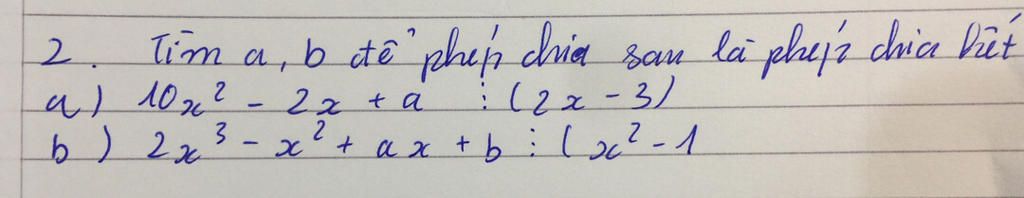 2. Tìm a, b để phép chia sau là phép chia hết
a) 10x² - 2x + a ⋮ (2x - 3)
b) 2x³ - x² + ax + b ⋮ (x² - 1